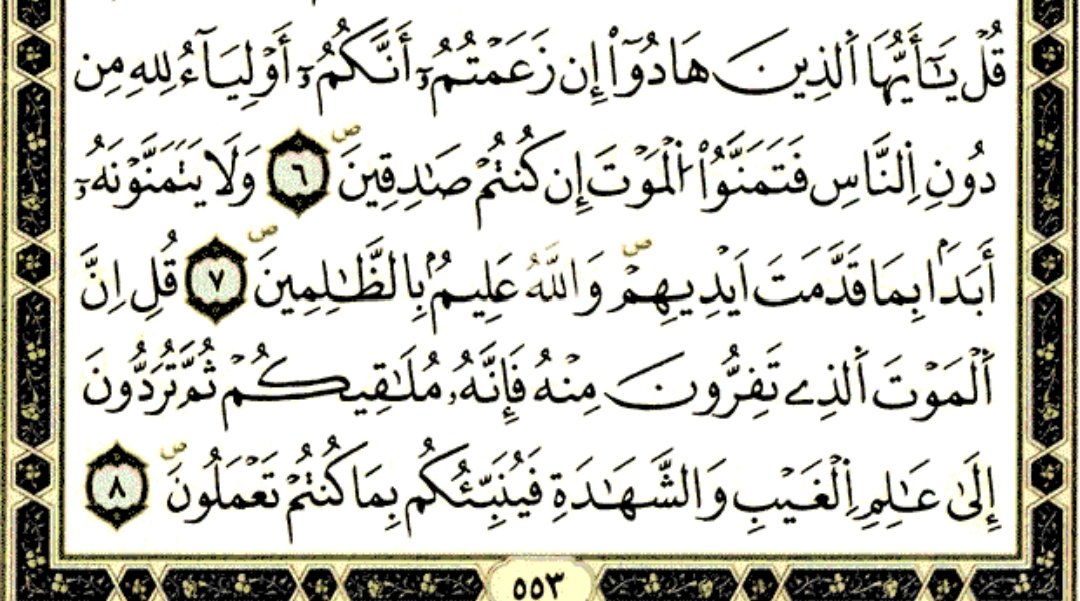 قُلْ يَٰٓأَيُّهَا اَ۬لذِينَ هَادُوٓاْ إِن زَعَمْتُمُۥٓ أَنَّكُمُۥٓ أَوْلِيَآءُ لِلهِ مِن
دُونِ اِ۬لنَّاسِ فَتَمَنَّوُاْ اُ۬لْمَوْتَ إِن كُنتُمْ صَٰدِقِينَۖ ٦ وَلَا يَتَمَنَّوْنَهُۥٓ
أَبَداَۢ بِمَا قَدَّمَتَ اَيْدِيهِمْۖ وَاللَّهُ عَلِيمُۢ بِالظَّٰلِمِينَۖ ٧ قُلِ اِنَّ
اَ۬لْمَوْتَ اَ۬لذِے تَفِرُّونَ مِنْهُ فَإِنَّهُۥ مُلَٰقِيكُمْ ثُمَّ تُرَدُّونَ
إِلَىٰ عَٰلِمِ اِ۬لْغَيْبِ وَالشَّهَٰدَةِ فَيُنَبِّئُكُم بِمَا كُنتُمْ تَعْمَلُونَۖ ٨
٥٥٣